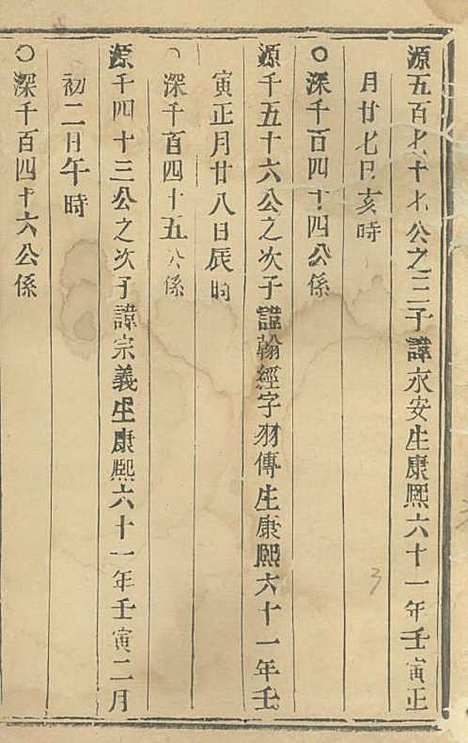 源五百七十九公之三子諱永安生康熙六十一年壬寅正
月廿七日亥時
○深千百四十四公係
源千五十六公之次子諱翰經字羽傳生康熙六十一年壬
寅正月廿八日辰時
○深千百四十五公係
源千四十三公之次子諱宗義生康熙六十一年壬寅二月
初二日午時
○深千百四十六公係
3